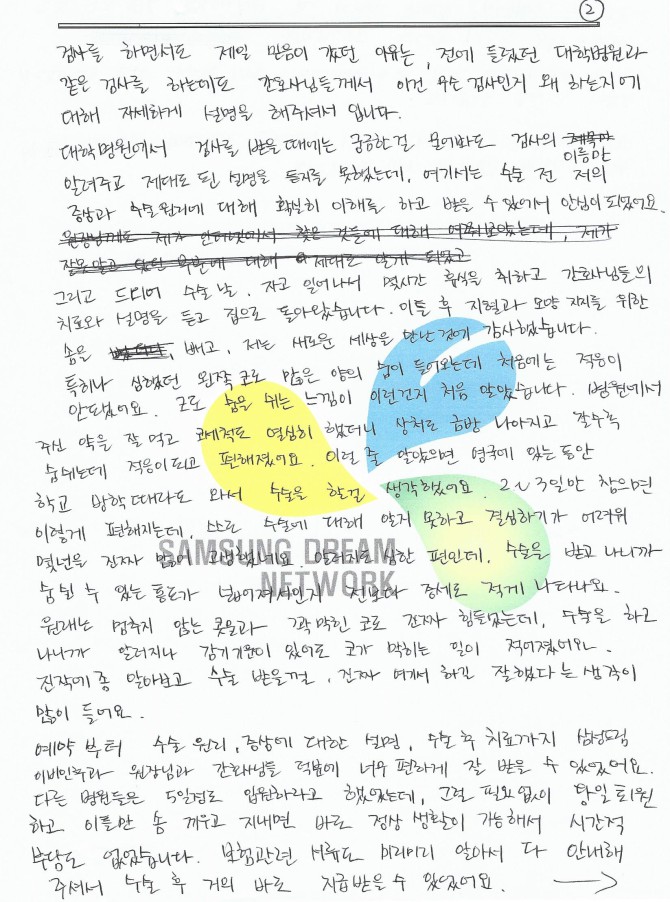 2
검사를 하면서도 제일 믿음이 갔던 이유는, 전에 들렸던 대학병원과
같은 검사를 하는데도 간호사님들께서 이건 무슨 검사인지 왜 하는지에
대해 자세하게 설명을 해주셔서 입니다.
대학병원에서 검사를 받을 때에는 궁금한걸 물어봐도 검사의 제목만
이름만
알려주고 제대로 된 설명을 듣지를 못했는데, 여기서는 수술 전 저의
증상과 수술원리에 대해 확실히 이해를 하고 받을 수 있어서 안심이 되었어요.
원장님께도 제가 인터넷에서 찾은 것들에 대해 여쭤보았는데, 제가
잘못알고 있던 부분에 대해 제대로 알게 되었고
그리고 드디어 수술 날. 자고 일어나서 몇시간 휴식을 취하고 간호사님들의
치료와 설명을 듣고 집으로 돌아왔습니다. 이틀 후 지혈과 모양 지지를 위한
솜을 빼고, 저는 새로운 세상을 만난것에 감사했습니다.
특히나 심했던 왼쪽 코로 많은 양의 숨이 들어오는데 처음에는 적응이
안됐어요. 코로 숨을 쉬는 느낌이 이런건지 처음 알았습니다. 병원에서
주신 약을 잘 먹고 코세척도 열심히 했더니 상처도 금방 나아지고 갈수록
숨쉬는데 적응이 되고 편해졌어요. 이럴 줄 알았으면 영국에 있는동안
학교 방학때라도 와서 수술을 할걸 생각했어요. 2~3일만 참으면
이렇게 편해지는데, 스스로 수술에 대해 알지 못하고 결심하기가 어려워
몇년을 진짜 많이 고생했네요. 알러지도 심한 편인데, 수술을 받고 나니까
SAMSUNG DREAM
NETWORK
숨쉴 수 있는 통로가 넓어져서인지 전보다 증세도 적게 나타나요.
원래는 멈추지 않는 콧물과 꽉 막힌 코로 진짜 힘들었는데, 수술을 하고
나니까 알러지나 감기기운이 있어도 코가 막히는 일이 적어졌어요.
진작에 좀 알아보고 수술 받을껄, 진짜 여기서 하길 잘했다는 생각이
많이 들어요.
예약 부터 수술 원리, 증상에 대한 설명, 수술 후 치료까지 삼성드림
이비인후과 원장님과 간호사님들 덕분에 너무 편하게 잘 받을 수 있었어요.
다른 병원들은 5일정도 입원하라고 했었는데, 그럴 필요 없이 당일 퇴원
하고 이틀만 솜 끼우고 지내면 바로 정상 생활이 가능해서 시간적
부담도 없었습니다. 보험관련 서류도 미리미리 알아서 다 안내해
주셔서 수술 후 거의 바로 지급받을 수 있었어요. →